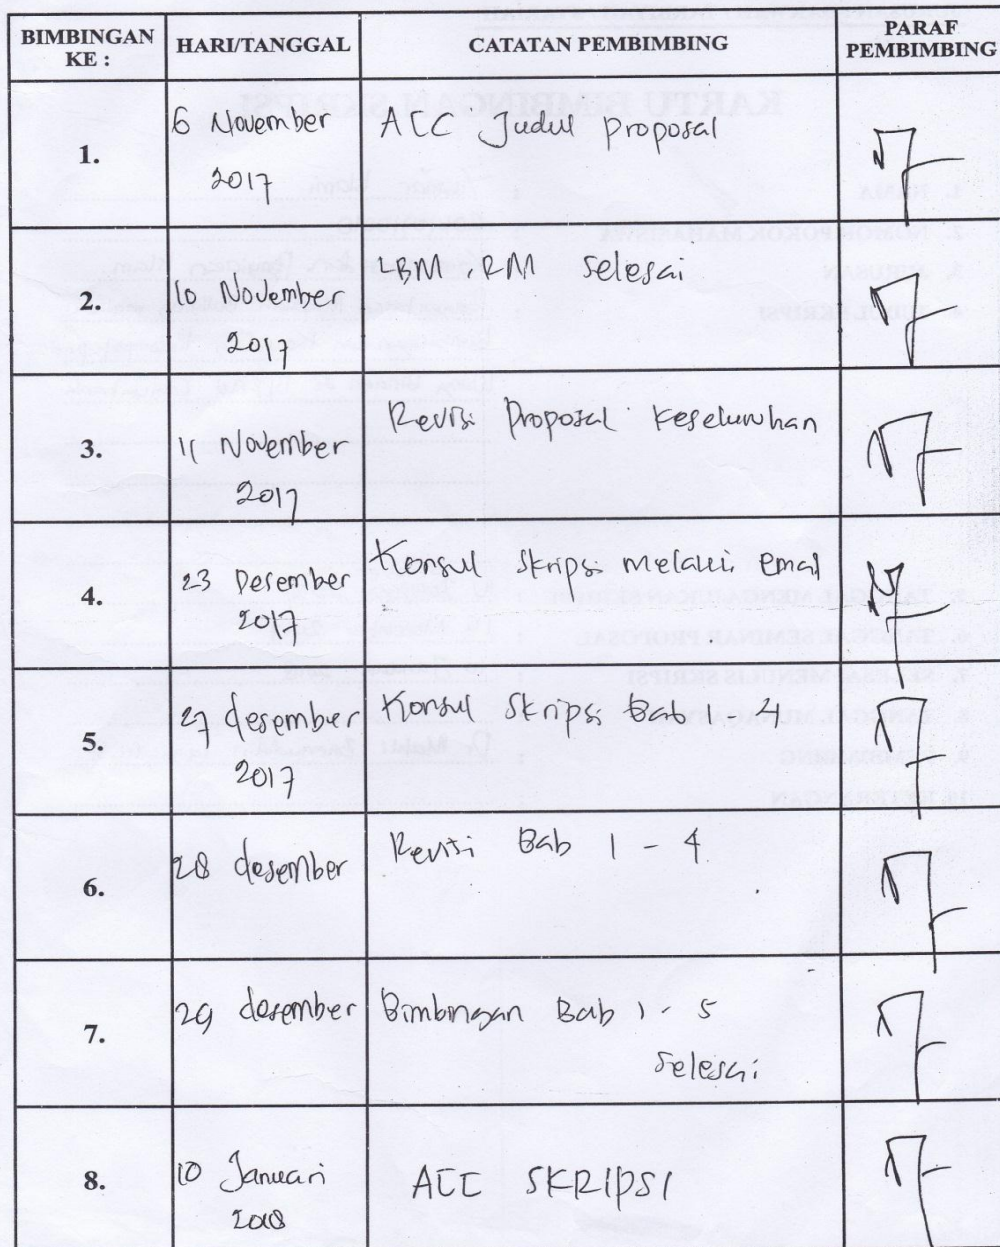 BIMBINGAN KE :
HARI/TANGGAL
CATATAN PEMBIMBING
PARAF PEMBIMBING
1.
6 November
2017
ACC Judul proposal
2.
10 November
2017
LBM, RM Selesai
3.
11 November
2017
Revisi Proposal Keseluruhan
4.
23 Desember
2017
Konsul Skripsi melalui email
5.
27 desember
2017
Konsul Skripsi Bab 1 - 4
6.
28 desember
Revisi Bab 1 - 4
7.
29 desember
Bimbingan Bab 1 - 5
Selesai
8.
10 Januari
2018
ACC SKRIPSI